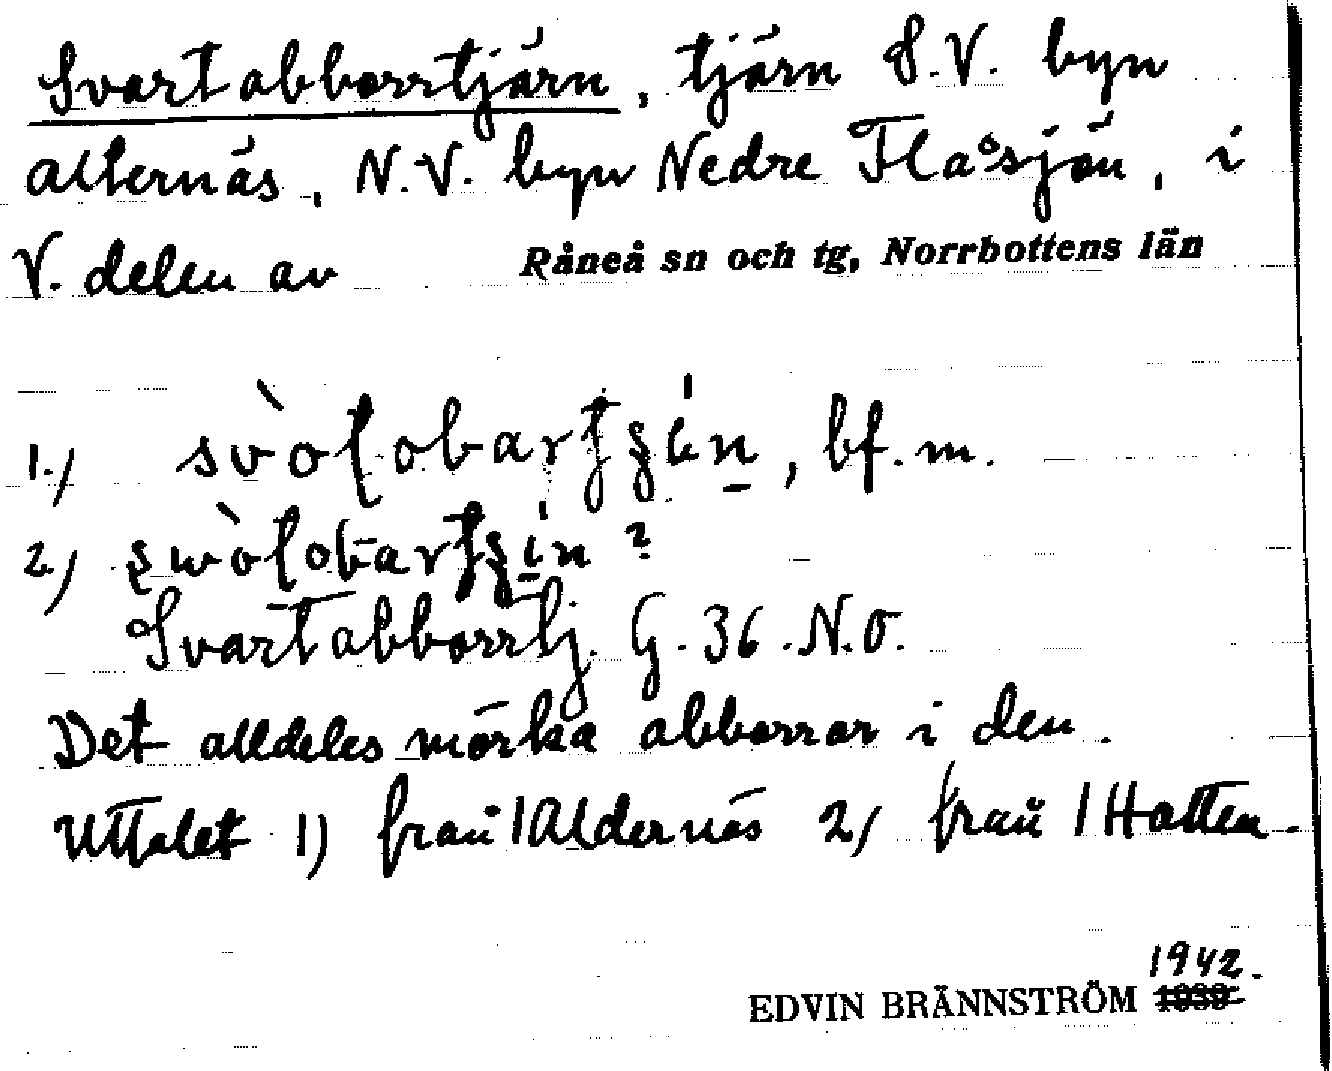 Svartabborrtjärn, tjärn S.V. byn
Alternäs, N.V. byn Nedre Flåsjön, i
V. delen av Råneå sn och tg, Norrbottens län
1.) bf. m.
2)
Svartabborrtj. G. 36. N.O.
Det alldeles mörka abborrar i den.
Uttalet 1) från Aldernäs 2) från Hatten.
1942.
EDVIN BRÄNNSTRÖM 1939